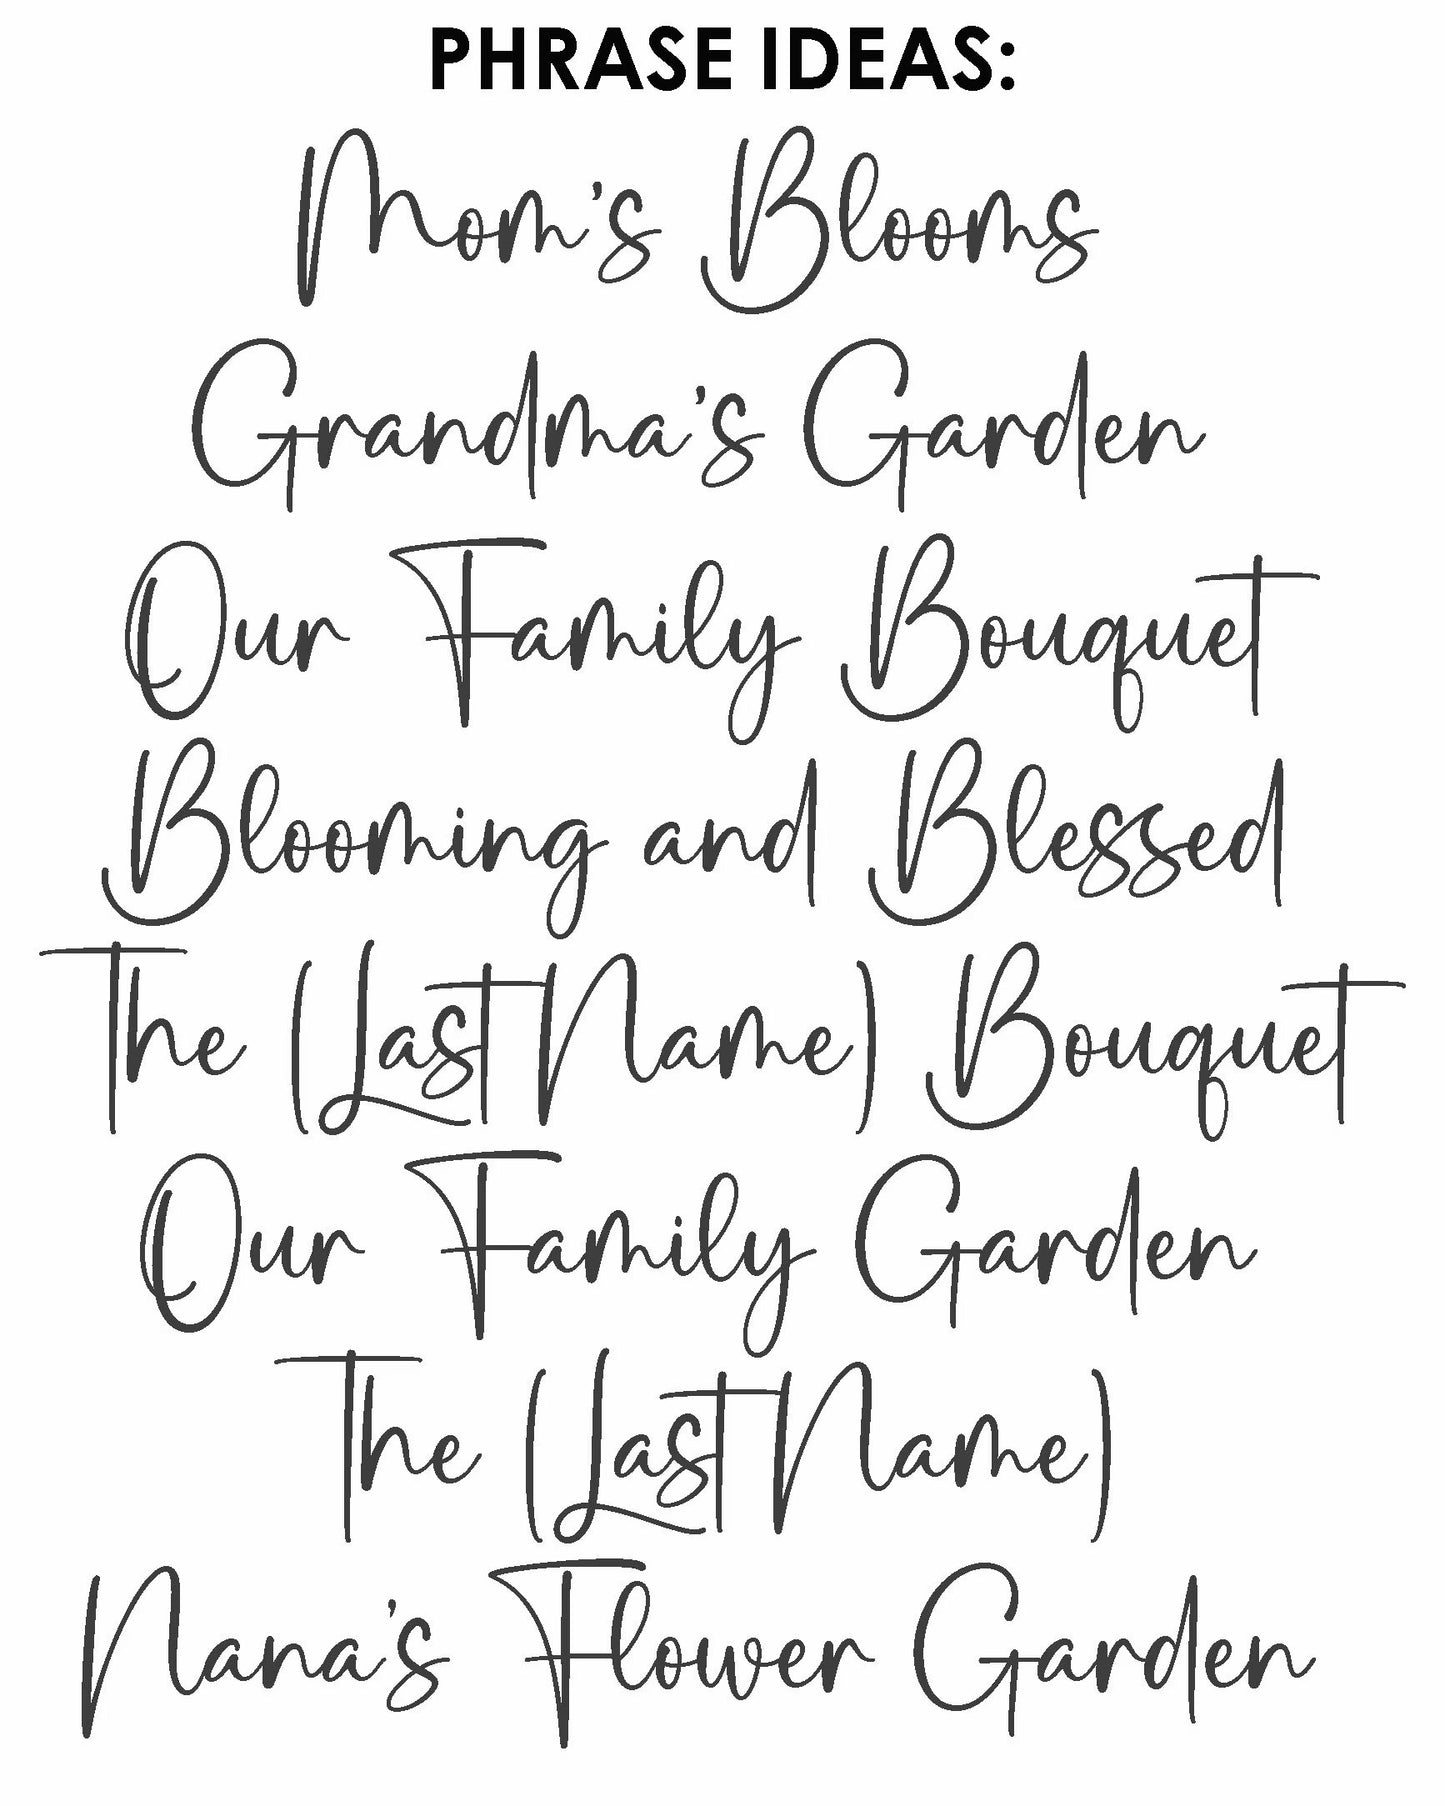 PHRASE IDEAS:
Mom's Blooms
Grandma's Garden
Our Family Bouquet
Blooming and Blessed
The (Last Name) Bouquet
Our Family Garden
The (Last Name)
Nana's Flower Garden